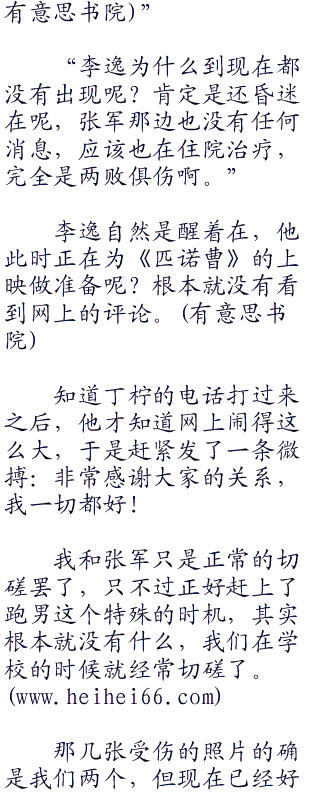 有意思书院)”
“李逸为什么到现在都
没有出现呢？肯定是还昏迷
在呢，张军那边也没有任何
消息，应该也在住院治疗，
完全是两败俱伤啊。”
李逸自然是醒着在，他
此时正在为《匹诺曹》的上
映做准备呢？根本就没有看
到网上的评论。(有意思书
院)
知道丁柠的电话打过来
之后，他才知道网上闹得这
么大，于是赶紧发了一条微
搏：非常感谢大家的关系，
我一切都好！
我和张军只是正常的切
磋罢了，只不过正好赶上了
跑男这个特殊的时机，其实
根本就没有什么，我们在学
校的时候就经常切磋了。
(www.heihei66.com)
那几张受伤的照片的确
是我们两个，但现在已经好